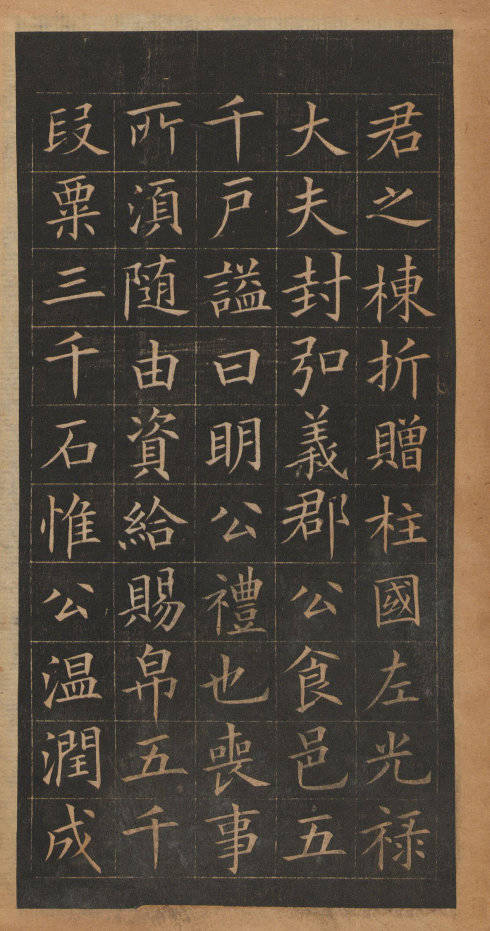 君之棟折贈柱國左光禄
大夫封弘義郡公食邑五
千戸謚曰明公禮也喪事
所湏随由資給賜帛五千
段粟三千石惟公温潤成